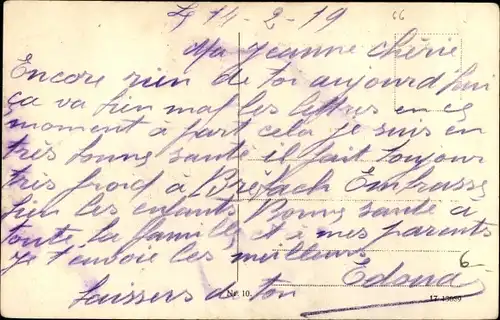 le 14-2-19
66
Ma Jeanne chérie
Encore rien de toi aujourd'hui
ça va bien mal les lettres en ce
moment à part cela je suis en
très bonne santé il fait toujour
très froid à Embrasse
bien les enfants Bonne santé à
toute la famille et à mes parents
je t'envoie les meilleurs
baissers de ton Edoua
6-
Nr. 10.
17 13039